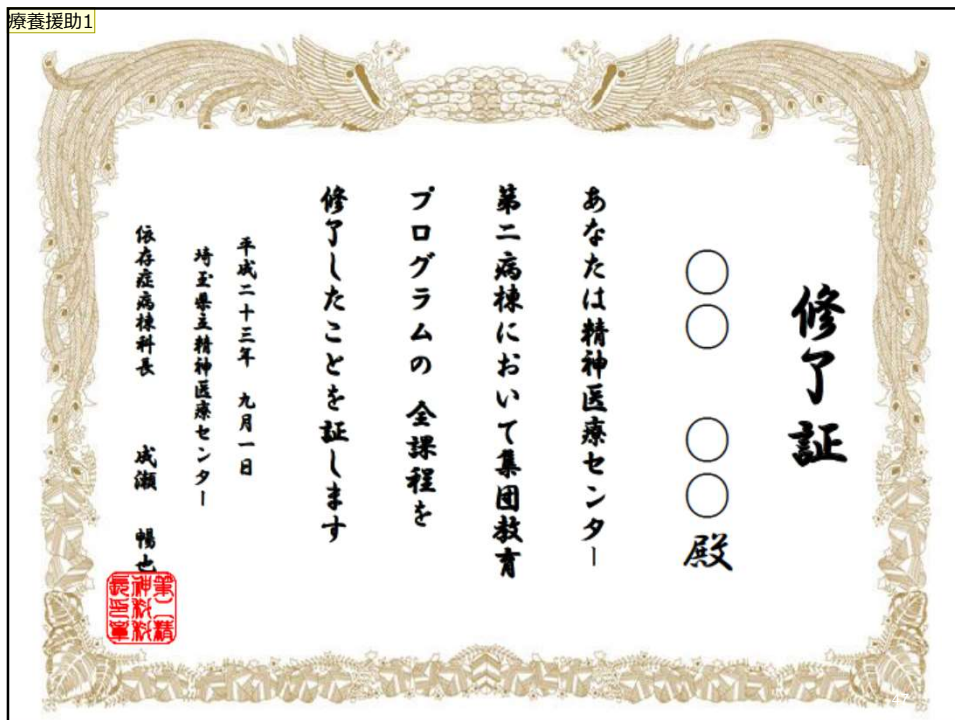 療養援助1
修了証
〇〇 〇〇殿
あなたは精神医療センター
第二病棟において集団教育
プログラムの 全課程を
修了したことを証します
平成二十三年 九月一日
埼玉県立精神医療センター
依存症病棟科長 成瀬 暢也
第二精
神科科
長之章
47